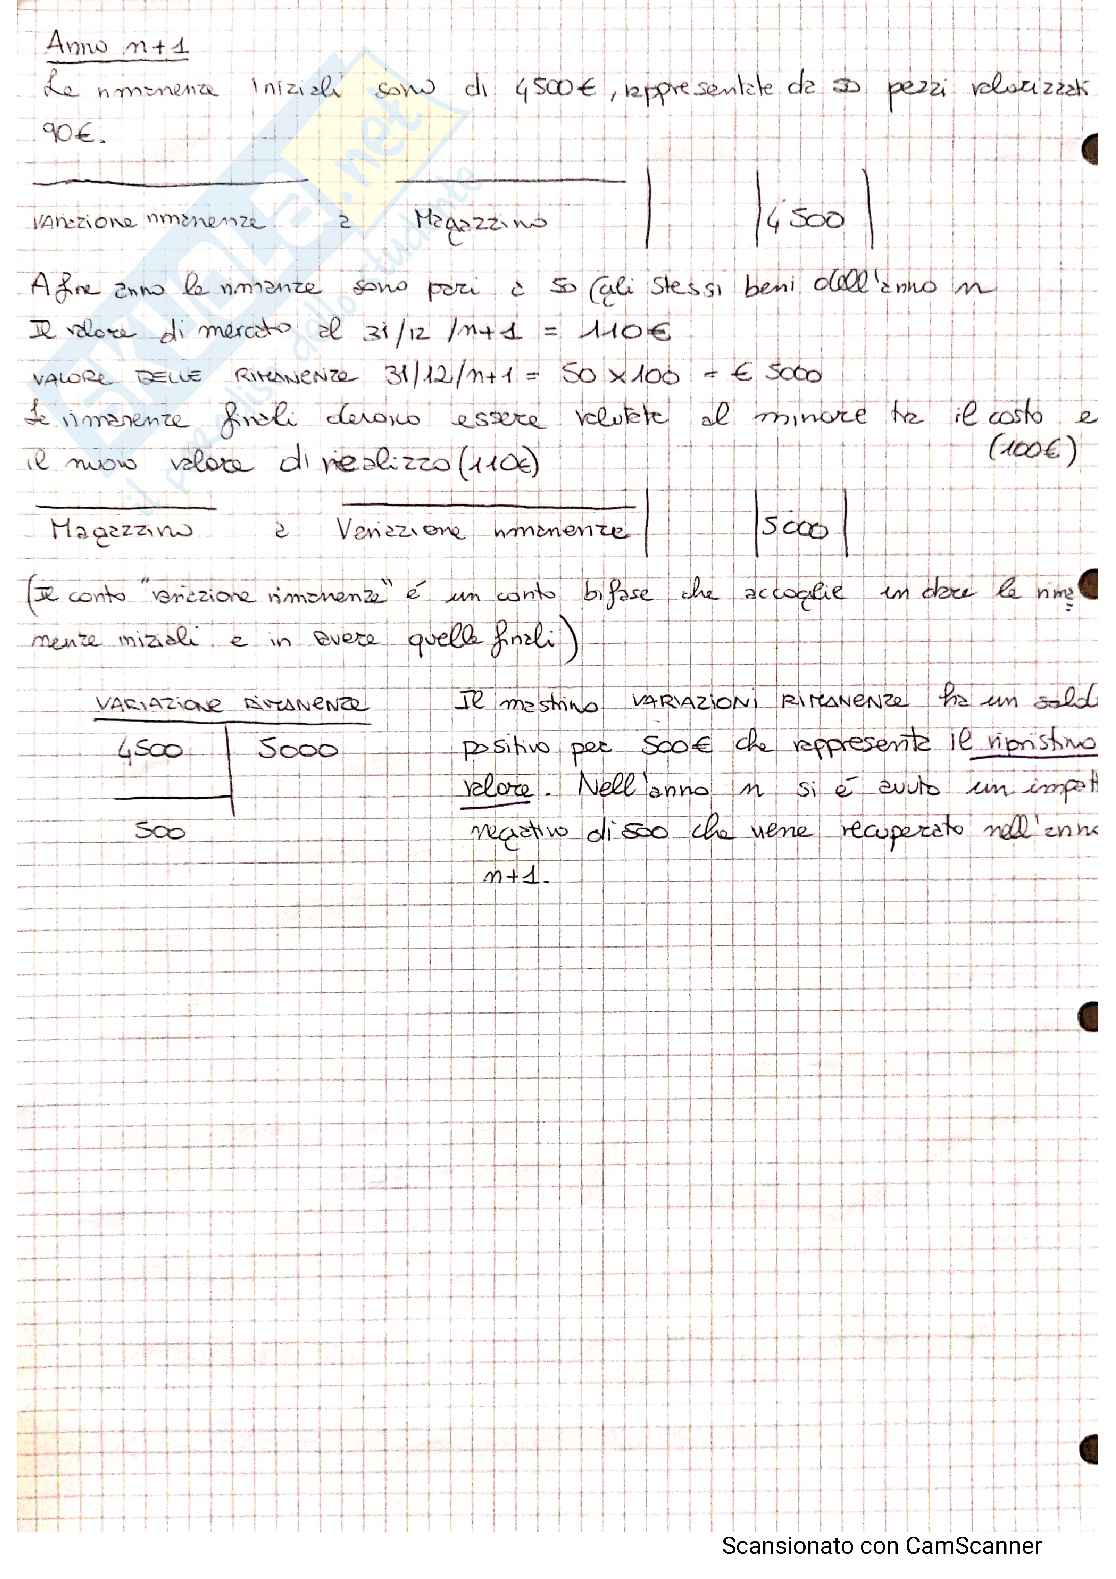 Anno n+1
Le rimanenze iniziali sono di 4500€, rappresentate da 50 pezzi valorizzati
90€.
Variazione rimanenze a Magazzino 4500
A fine anno le rimanze sono pari a 50 (gli stessi beni dell'anno n
Il valore di mercato al 31/12/n+1 = 110€
VALORE DELLE RIMANENZE 31/12/n+1 = 50 x 100 = € 5000
Le rimanenze finali devono essere valutate al minore tra il costo e
(100€)
il nuovo valore di realizzo (110€)
Magazzino a Variazione rimanenze 5000
(Il conto "variazione rimanenze" é un conto bifase che accoglie in dare le rima
nenze iniziali e in avere quelle finali)
VARIAZIONE RIMANENZE
4500 5000
500
Il mastrino VARIAZIONI RIMANENZE ha un sald
positivo per 500€ che rappresenta il ripristino
valore. Nell'anno n si é avuto un impatt
negativo di 500 che viene recuperato nell'anno
n+1.
SKUOLA.net
il paradiso dello studente
Scansionato con CamScanner